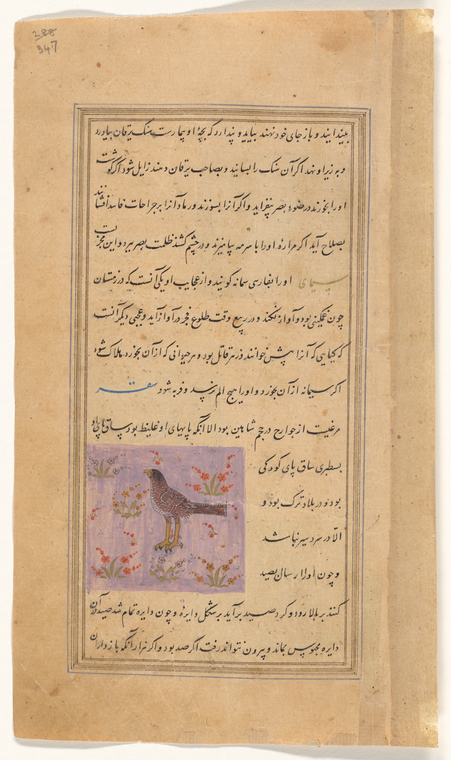 388
347
بیندایند و باز جای خود نهند بیاید و پندارد که بچهٔ او بیمارست سنک یرقان بیاورد
و به زیر او نهد اکر آن سنک را بسایند و بصاحب یرقان دهند زایل شود اکر کوشت
او را بخورند در ضوء بصر بیفزاید و اکر آنرا بسوزند و رماد آنرا بر جراحات فاسد افشانند
بصلاح آید اکر مراره او را با سرمه بیامیزند و در چشم کشند ظلمت بصر ببرد و این مجربست
او را بفارسی سمانه کویند و از عجایب او یکی آنست که در زمستان
چون غمکینی بود و آواز نکند و در ربیع وقت طلوع فجر در آواز آید و عجبی دیکر آنست
که کیاهی که آنرا بیش خوانند زهر قاتل بود و هر حیوانی که از آن بخورد هلاک شود
اکر سمانه از آن بخورد و او را هیچ الم نرسد و فربه شود سقر
مرغیست از جوارح در حجم شاهین بود الا آنکه پایهای او غلیظ بود ساق پای او
بسطبری ساق پای کودکی
بود و در بلاد ترک بود و
الا در سردسیر نباشد
و چون او را ارسال بصید
کنند بر بالا رود و کرد صید برآید بر شکل دایره و چون دایره تمام شد صید در آن
دایره محبوس بماند و بیرون نتواند رفت اکر صد بود و اکر هزار آنکه بازداران